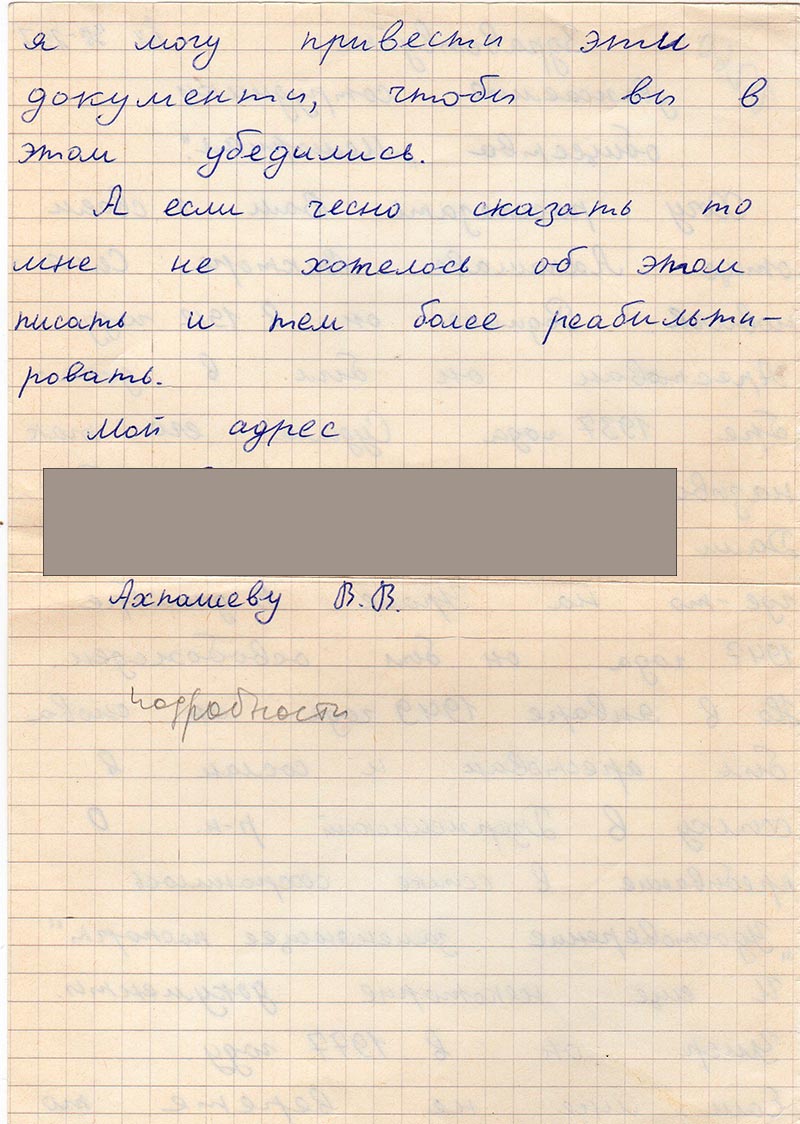 я могу привести эти
документы, чтобы вы в
этом убедились.
А если чесно сказать то
мне не хотелось об этом
писать и тем более реабильти-
ровать.
Мой адрес
Ахпашеву В.В.
подробности